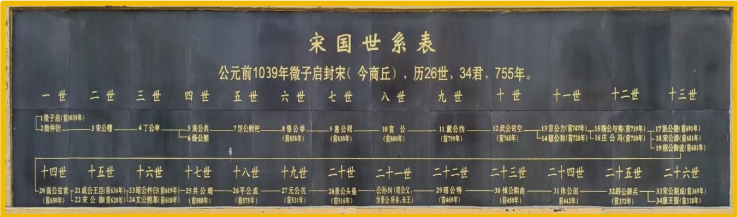 宋国世系表
公元前1039年微子启封宋(今商丘)，历26世，34君，755年。
一世 二世 三世 四世 五世 六世 七世 八世 九世 十世 十一世 十二世 十三世
1微子启(前1039年)
2微仲衍 3宋公稽 4丁公申 5湣公共 7厉公鲋祀 8釐公举 9惠公覵 10哀公 11戴公 12武公司空 13宣公力(前747年) 15殇公与夷(前719年) 17湣公捷(前691年)
6炀公熙 (前858年) (前830年) (前800年) (前799年) (前765年) 14穆公和(前728年) 16庄公冯(前710年) 18宋公游(前681年)
19桓公御说(前681年)
十四世 十五世 十六世 十七世 十八世 十九世 二十世 二十一世 二十二世 二十三世 二十四世 二十五世 二十六世
20襄公兹甫 21成公王臣(前636年) 23昭公杵臼(前619年) 25共公瑕 26平公成 27元公佐 28景公头曼 29昭公特 30悼公购由 31休公田 32辟公辟兵 33宋公剔成(前369年)
(前650年) 22宋公御(前620年) 24文公鲍革(前610年) (前588年) (前575年) (前531年) (前516年) (前469年) (前372年) 34康王偃(前328年)